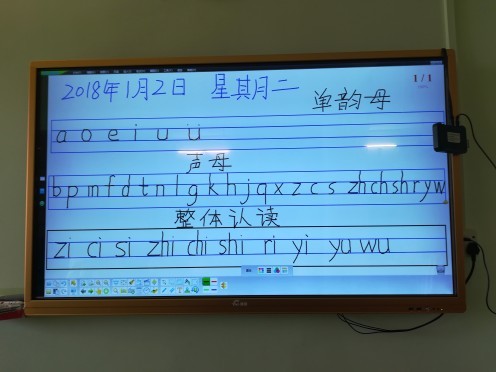 2018年1月2日 星期二
1/1
单韵母
a o e i u ü
声母
b p m f d t n l g k h j q x z c s zh ch sh r y w
整体认读
zi ci si zhi chi shi ri yi yu wu